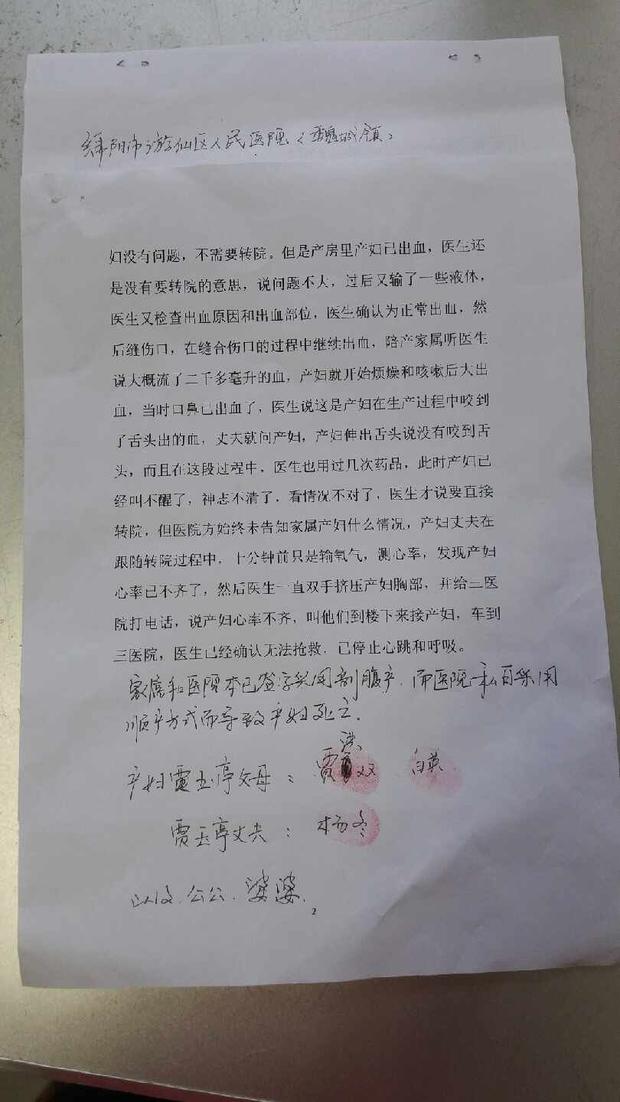 绵阳市游仙区人民医院（魏城镇）
妇没有问题，不需要转院。但是产房里产妇已出血，医生还
是没有要转院的意思，说问题不大，过后又输了一些液体，
医生又检查出血原因和出血部位，医生确认为正常出血，然
后缝伤口，在缝合伤口的过程中继续出血，陪产家属听医生
说大概流了二千多毫升的血，产妇就开始烦燥和咳嗽后大出
血，当时口鼻已出血了，医生说这是产妇在生产过程中咬到
了舌头出的血，丈夫就问产妇，产妇伸出舌头说没有咬到舌
头，而且在这段过程中，医生也用过几次药品，此时产妇已
经叫不醒了，神志不清了，看情况不对了，医生才说要直接
转院，但医院方始终未告知家属产妇什么情况，产妇丈夫在
跟随转院过程中，十分钟前只是输氧气，测心率，发现产妇
心率已不齐了，然后医生一直双手挤压产妇胸部，并给三医
院打电话，说产妇心率不齐，叫他们到楼下来接产妇，车到
三医院，医生已经确认无法抢救，已停止心跳和呼吸。
家属和医院本已签字共同剖腹产，而医院私自采用
顺产方式而导致产妇死亡。
产妇贾玉亭父母：贾洪双 白英
贾玉亭丈夫：杨冬
以及公公、婆婆。
2